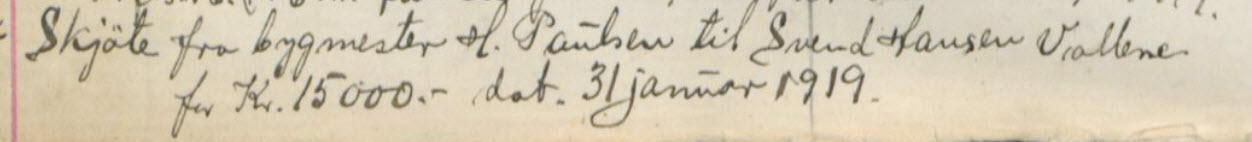 Skjöte fra bygmester H. Paulsen til Svend Hansen Vallene
for Kr. 15000.- dat. 31 januar 1919.